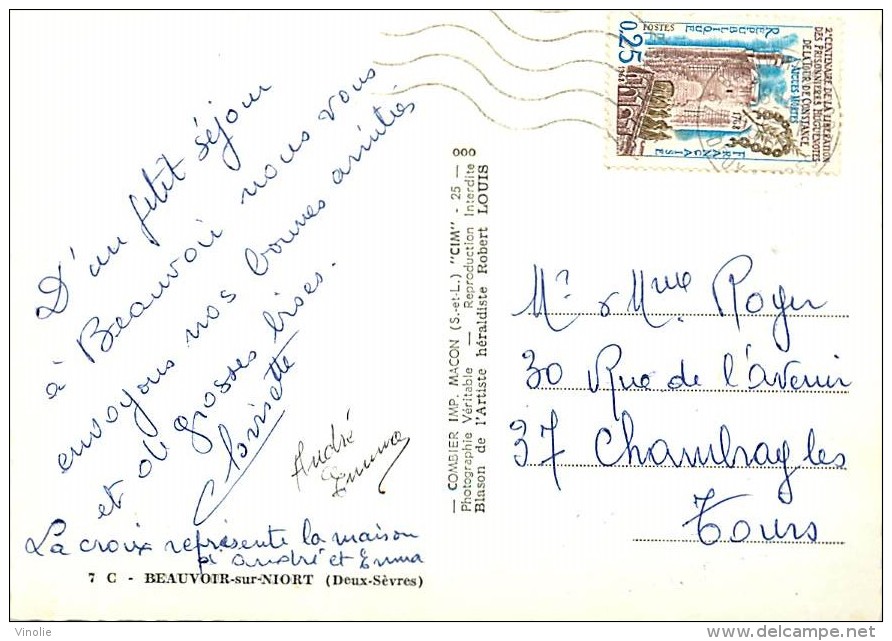 D'un petit séjour
à Beauvoir nous vous
envoyons nos bonnes amitiés
et de grosses bises.
Cloisette
André
Emma
La croix représente la maison
d'André et Emma
7 C - BEAUVOIR-sur-NIORT (Deux-Sèvres)
— COMBIER IMP. MACON (S.-et-L.) "CIM" - 25 — 000
Photographie Véritable — Reproduction Interdite
Blason de l'Artiste héraldiste Robert LOUIS
0,25
POSTES
REPUBLIQUE
FRANÇAISE
2e CENTENAIRE DE LA LIBÉRATION
DES PRISONNIÈRES HUGUENOTES
DE LA TOUR DE CONSTANCE
AIGUES MORTES
1768
Mr & Mme Roger
30 Rue de l'avenir
37 Chambray les
Tours
Vinolie
http://www.delcampe.net